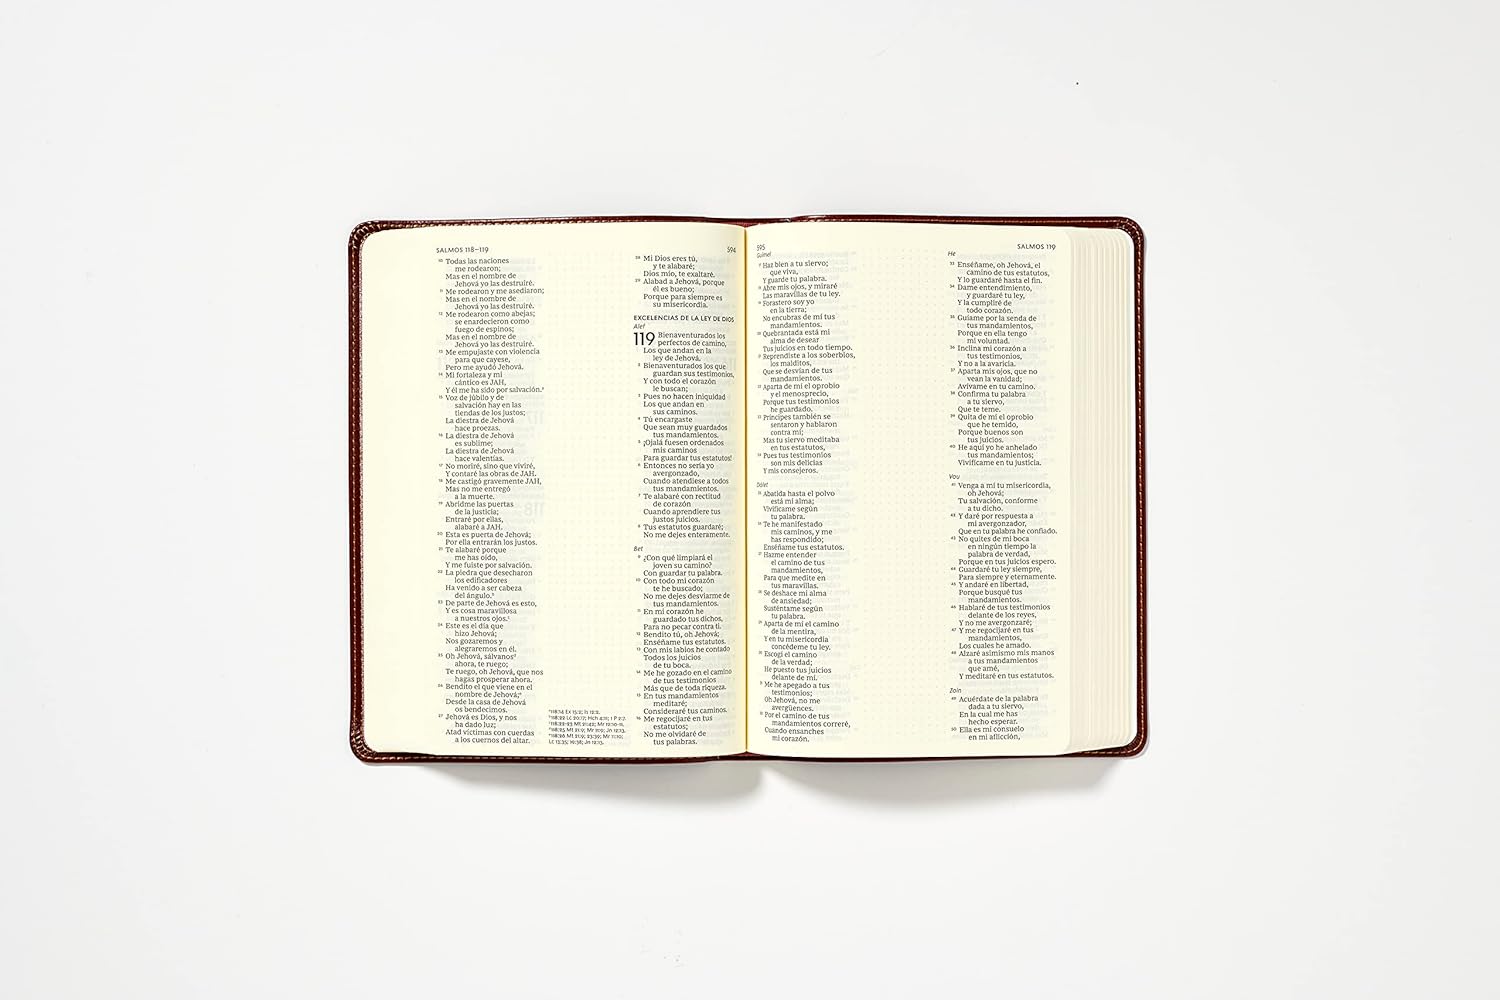 SALMOS 118–119
10 Todas las naciones
me rodearon;
Mas en el nombre de
Jehová yo las destruiré.
11 Me rodearon y me asediaron;
Mas en el nombre de
Jehová yo las destruiré.
12 Me rodearon como abejas;
se enardecieron como
fuego de espinos;
Mas en el nombre de
Jehová yo las destruiré.
13 Me empujaste con violencia
para que cayese,
Pero me ayudó Jehová.
14 Mi fortaleza y mi
cántico es JAH,
Y él me ha sido por salvación.
15 Voz de júbilo y de
salvación hay en las
tiendas de los justos;
La diestra de Jehová
hace proezas.
16 La diestra de Jehová
es sublime;
La diestra de Jehová
hace valentías.
17 No moriré, sino que viviré,
Y contaré las obras de JAH.
18 Me castigó gravemente JAH,
Mas no me entregó
a la muerte.
19 Abridme las puertas
de la justicia;
Entraré por ellas,
alabaré a JAH.
20 Esta es puerta de Jehová;
Por ella entrarán los justos.
21 Te alabaré porque
me has oído,
Y me fuiste por salvación.
22 La piedra que desecharon
los edificadores
Ha venido a ser cabeza
del ángulo.
23 De parte de Jehová es esto,
Y es cosa maravillosa
a nuestros ojos.
24 Este es el día que
hizo Jehová;
Nos gozaremos y
alegraremos en él.
25 Oh Jehová, sálvanos
ahora, te ruego;
Te ruego, oh Jehová, que nos
hagas prosperar ahora.
26 Bendito el que viene en el
nombre de Jehová;
Desde la casa de Jehová
os bendecimos.
27 Jehová es Dios, y nos
ha dado luz;
Atad víctimas con cuerdas
a los cuernos del altar.
118:14 Ex 15:2; Is 12:2.
118:22 Lc 20:17; Hch 4:11; 1 P 2:7.
118:22-23 Mt 21:42; Mr 12:10-11.
118:25 Mt 21:9; Mr 11:9; Jn 12:13.
118:26 Mt 21:9; 23:39; Mr 11:9;
Lc 13:35; 19:38; Jn 12:13.
594
28 Mi Dios eres tú,
y te alabaré;
Dios mío, te exaltaré.
29 Alabad a Jehová, porque
él es bueno;
Porque para siempre es
su misericordia.
EXCELENCIAS DE LA LEY DE DIOS
Alef
119 Bienaventurados los
perfectos de camino,
Los que andan en la
ley de Jehová.
2 Bienaventurados los que
guardan sus testimonios,
Y con todo el corazón
le buscan;
3 Pues no hacen iniquidad
Los que andan en
sus caminos.
4 Tú encargaste
Que sean muy guardados
tus mandamientos.
5 ¡Ojalá fuesen ordenados
mis caminos
Para guardar tus estatutos!
6 Entonces no sería yo
avergonzado,
Cuando atendiese a todos
tus mandamientos.
7 Te alabaré con rectitud
de corazón
Cuando aprendiere tus
justos juicios.
8 Tus estatutos guardaré;
No me dejes enteramente.
Bet
9 ¿Con qué limpiará el
joven su camino?
Con guardar tu palabra.
10 Con todo mi corazón
te he buscado;
No me dejes desviarme de
tus mandamientos.
11 En mi corazón he
guardado tus dichos,
Para no pecar contra ti.
12 Bendito tú, oh Jehová;
Enséñame tus estatutos.
13 Con mis labios he contado
Todos los juicios
de tu boca.
14 Me he gozado en el camino
de tus testimonios
Más que de toda riqueza.
15 En tus mandamientos
meditaré;
Consideraré tus caminos.
16 Me regocijaré en tus
estatutos;
No me olvidaré de
tus palabras.
595
Guímel
Haz bien a tu siervo;
que viva,
Y guarde tu palabra.
Abre mis ojos, y miraré
Las maravillas de tu ley.
Forastero soy yo
en la tierra;
No encubras de mí tus
mandamientos.
Quebrantada está mi
alma de desear
Tus juicios en todo tiempo.
Reprendiste a los soberbios,
los malditos,
Que se desvían de tus
mandamientos.
Aparta de mí el oprobio
y el menosprecio,
Porque tus testimonios
he guardado.
Príncipes también se
sentaron y hablaron
contra mí;
Mas tu siervo meditaba
en tus estatutos,
Pues tus testimonios
son mis delicias
Y mis consejeros.
Dálet
Abatida hasta el polvo
está mi alma;
Vivifícame según
tu palabra.
Te he manifestado
mis caminos, y me
has respondido;
Enséñame tus estatutos.
Hazme entender
el camino de tus
mandamientos,
Para que medite en
tus maravillas.
Se deshace mi alma
de ansiedad;
Susténtame según
tu palabra.
Aparta de mí el camino
de la mentira,
Y en tu misericordia
concédeme tu ley.
Escogí el camino
de la verdad;
He puesto tus juicios
delante de mí.
Me he apegado a tus
testimonios;
Oh Jehová, no me
avergüences.
Por el camino de tus
mandamientos correré,
Cuando ensanches
mi corazón.
SALMOS 119
He
33 Enséñame, oh Jehová, el
camino de tus estatutos,
Y lo guardaré hasta el fin.
34 Dame entendimiento,
y guardaré tu ley,
Y la cumpliré de
todo corazón.
35 Guíame por la senda de
tus mandamientos,
Porque en ella tengo
mi voluntad.
36 Inclina mi corazón a
tus testimonios,
Y no a la avaricia.
37 Aparta mis ojos, que no
vean la vanidad;
Avívame en tu camino.
38 Confirma tu palabra
a tu siervo,
Que te teme.
39 Quita de mí el oprobio
que he temido,
Porque buenos son
tus juicios.
40 He aquí yo he anhelado
tus mandamientos;
Vivifícame en tu justicia.
Vau
41 Venga a mí tu misericordia,
oh Jehová;
Tu salvación, conforme
a tu dicho.
42 Y daré por respuesta a
mi avergonzador,
Que en tu palabra he confiado.
43 No quites de mi boca
en ningún tiempo la
palabra de verdad,
Porque en tus juicios espero.
44 Guardaré tu ley siempre,
Para siempre y eternamente.
45 Y andaré en libertad,
Porque busqué tus
mandamientos.
46 Hablaré de tus testimonios
delante de los reyes,
Y no me avergonzaré;
47 Y me regocijaré en tus
mandamientos,
Los cuales he amado.
48 Alzaré asimismo mis manos
a tus mandamientos
que amé,
Y meditaré en tus estatutos.
Zain
49 Acuérdate de la palabra
dada a tu siervo,
En la cual me has
hecho esperar.
50 Ella es mi consuelo
en mi aflicción,